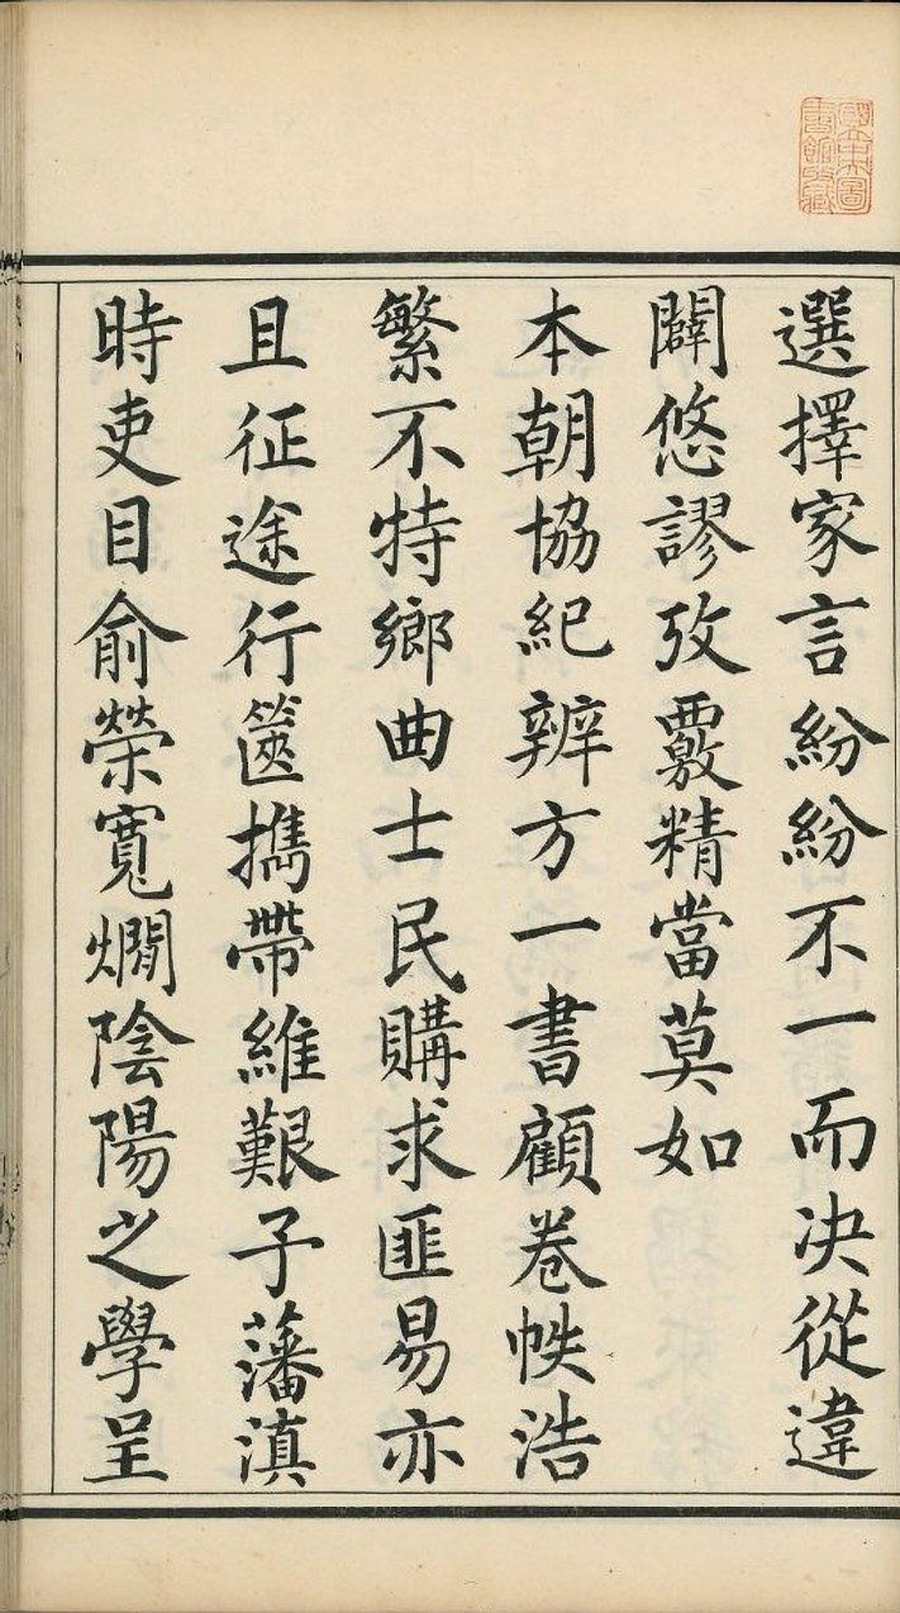 選擇家言紛紛不一而決從違
闢悠謬攷覈精當莫如
本朝協紀辨方一書顧卷帙浩
繁不特鄉曲士民購求匪易亦
且征途行篋攜帶維艱予藩滇
時吏目俞榮寬燗陰陽之學呈
國立中央圖
書館收藏